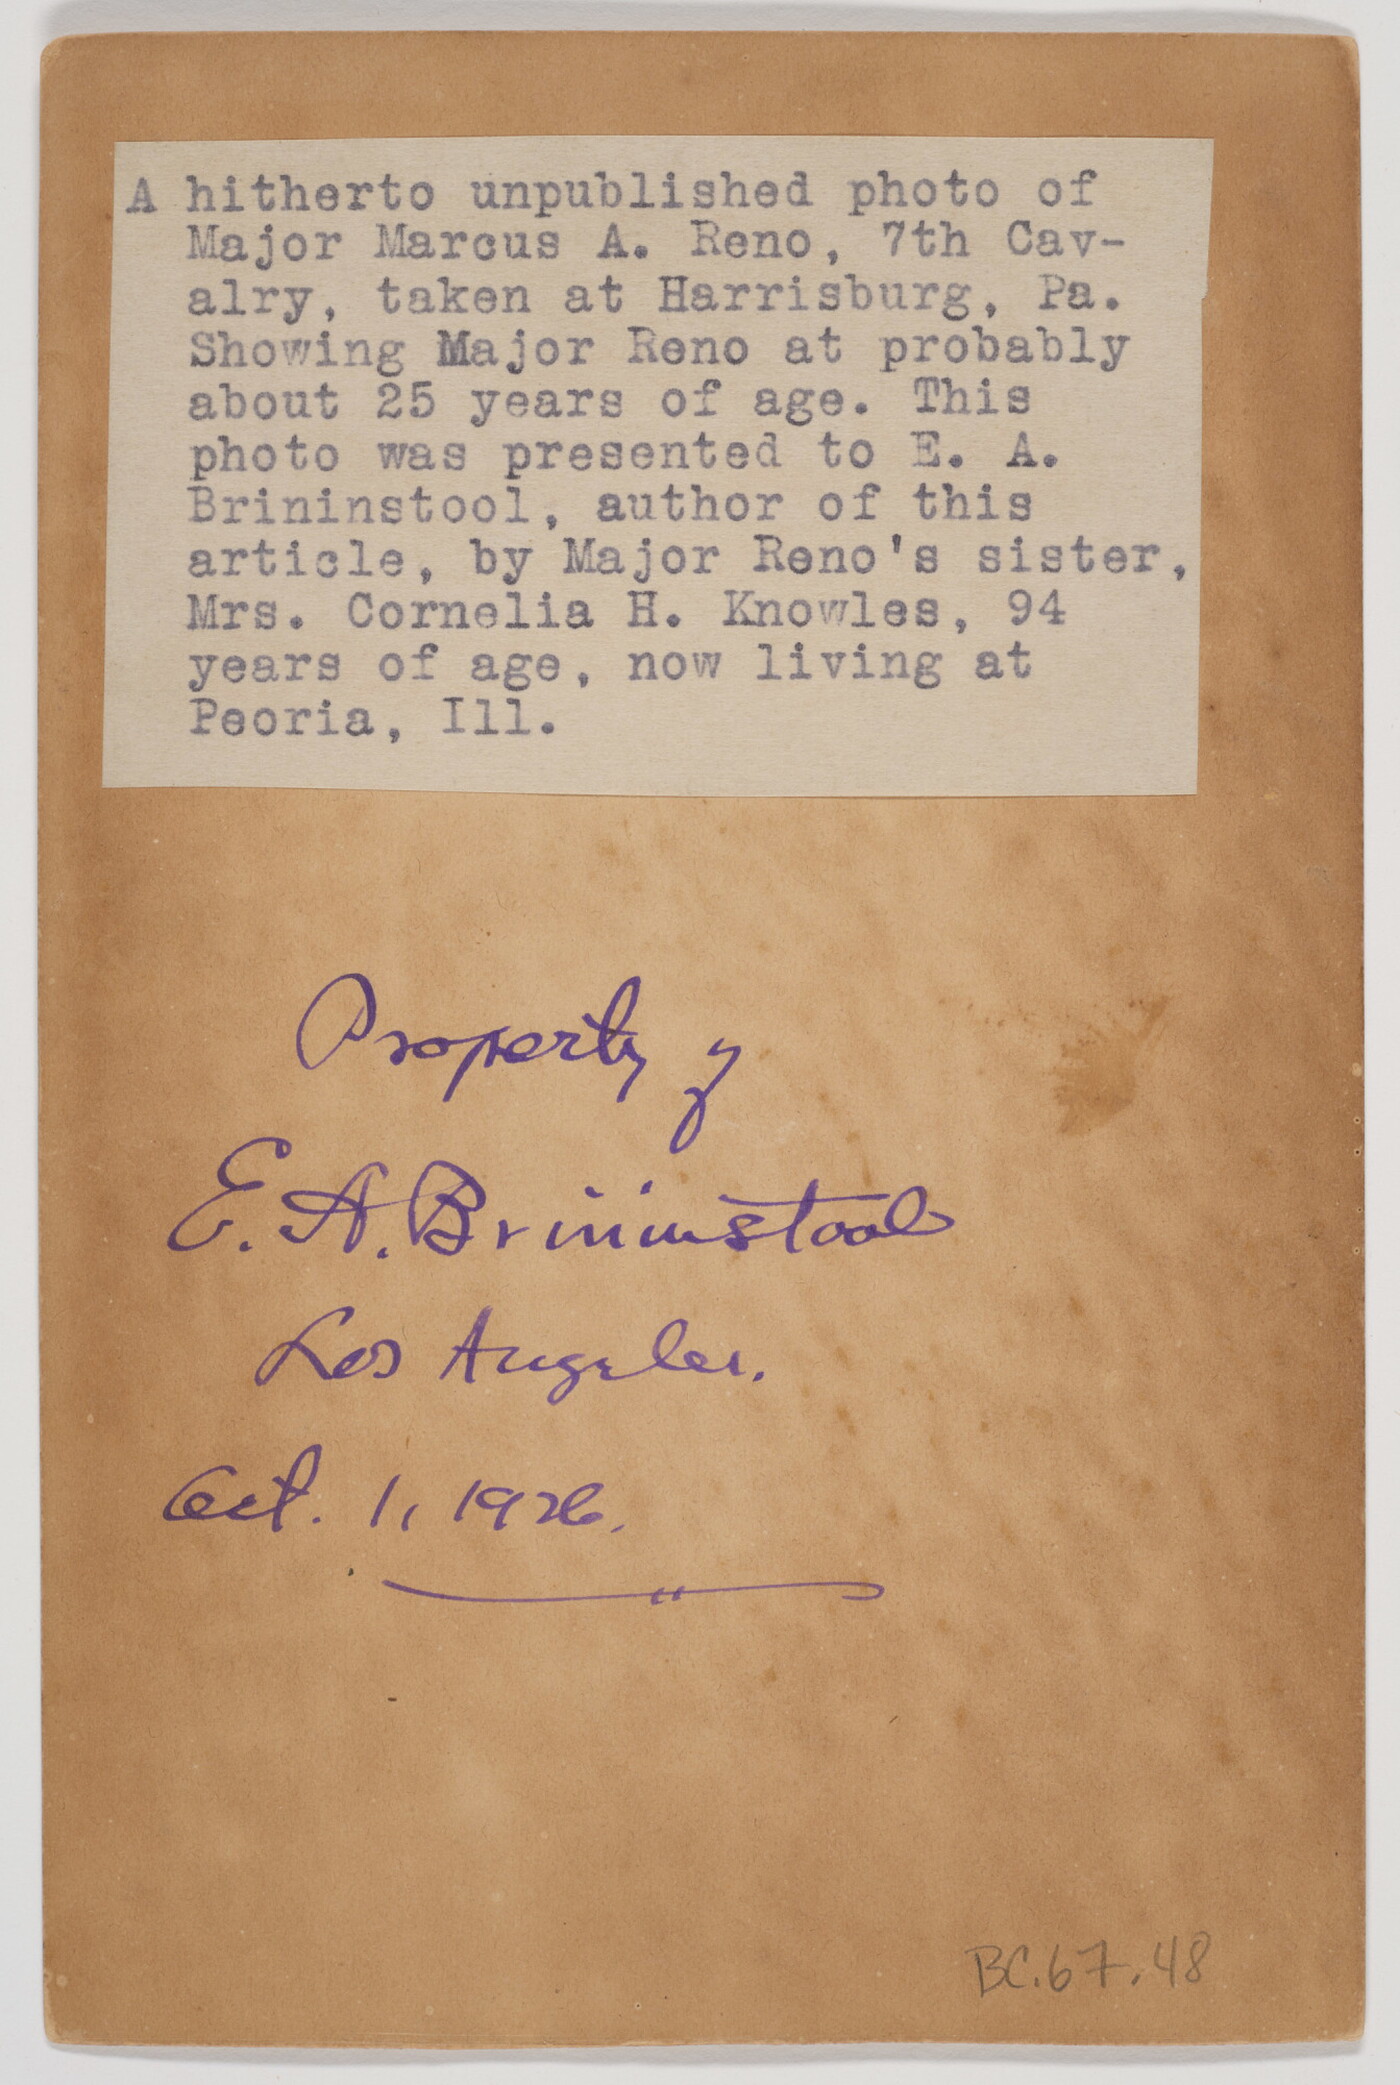 A hitherto unpublished photo of
Major Marcus A. Reno, 7th Cav-
alry, taken at Harrisburg, Pa.
Showing Major Reno at probably
about 25 years of age. This
photo was presented to E. A.
Brininstool, author of this
article, by Major Reno's sister,
Mrs. Cornelia H. Knowles, 94
years of age, now living at
Peoria, Ill.
Property of
E. A. Brininstool
Los Angeles.
Oct. 1, 1926.
BC.67.48